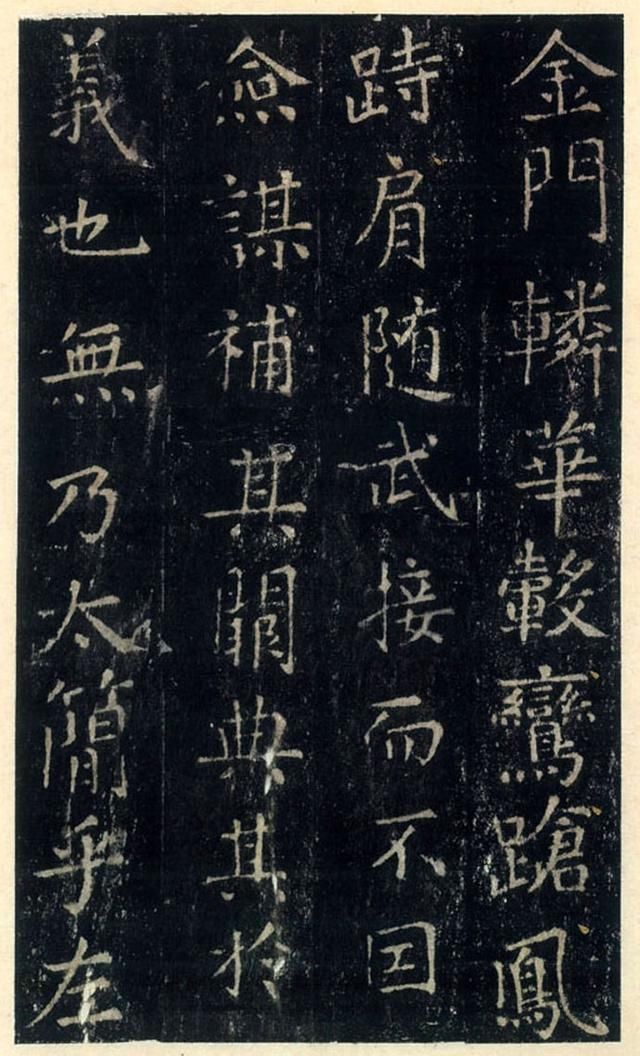 金門轔華轂鸞蹌鳳
跱肩随武接而不囙
僉謀補其闕典其於
義也無乃太簡乎左